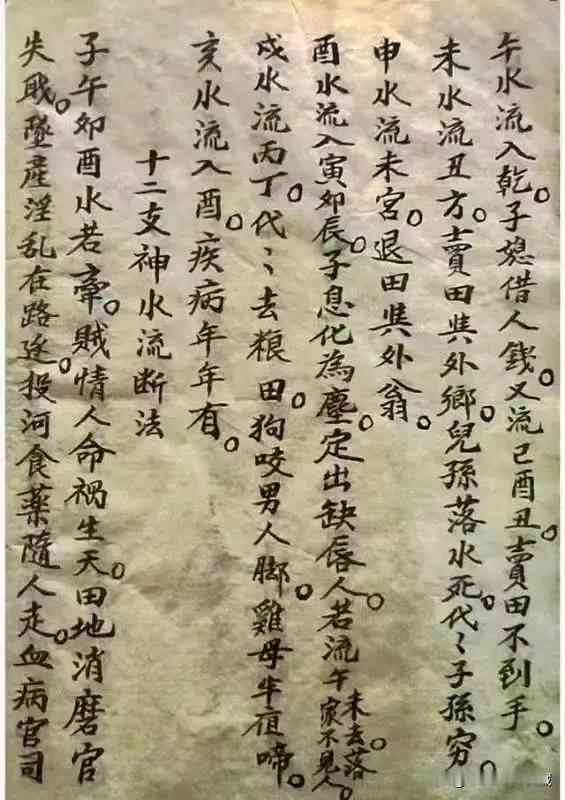 午水流入乾。子媳借人錢。又流巳酉丑。賣田不到手。
未水流丑方。賣田與外鄉。兒孫落水死。代〻子孫窮。
申水流未宮。退田與外翁。
酉水流入寅卯辰。子息化為塵。定出缺唇人。若流午未去。落家不見人。
戌水流丙丁。代〻去粮田。狗咬男人脚。雞母半夜啼。
亥水流入酉。疾病年年有。
十二支神水流断法
子午卯酉水若牽。賊情人命禍生天。田地消磨官
失敗。墜產淫乱在路途。投河食藥隨人走。血病官司